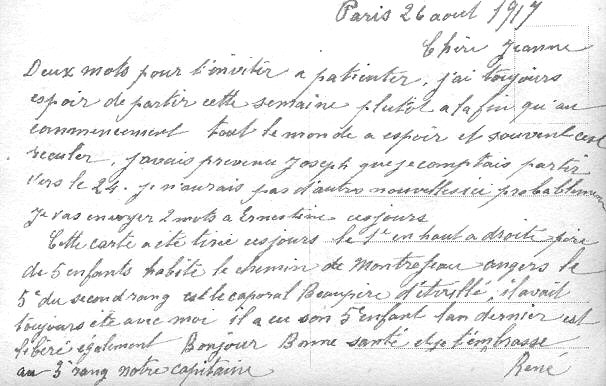 Paris 26 aout 1917
Chère Jeanne
Deux mots pour t'inviter a patienter, j'ai toujours
espoir de partir cette semaine plutot a la fin qu'au
commencement tout le monde a espoir et souvent c'est
reculer, j'avais prevenu Joseph que je comptais partir
vers le 24. je n'aurais pas d'autre nouvelles ici probablement
Je vas envoyer 2 mots a Ernestine ces jours
Cette carte a été tiré ces jours le 1er en haut a droite père
de 5 enfants habite le chemin de angers le
5e du second rang est le caporal Beaupère d'étrillé, il avait
toujours été avec moi il a eu son 5e enfant l'an dernier est
libéré également Bonjour Bonne santé et je t'embrasse
au 3e rang notre capitaine René